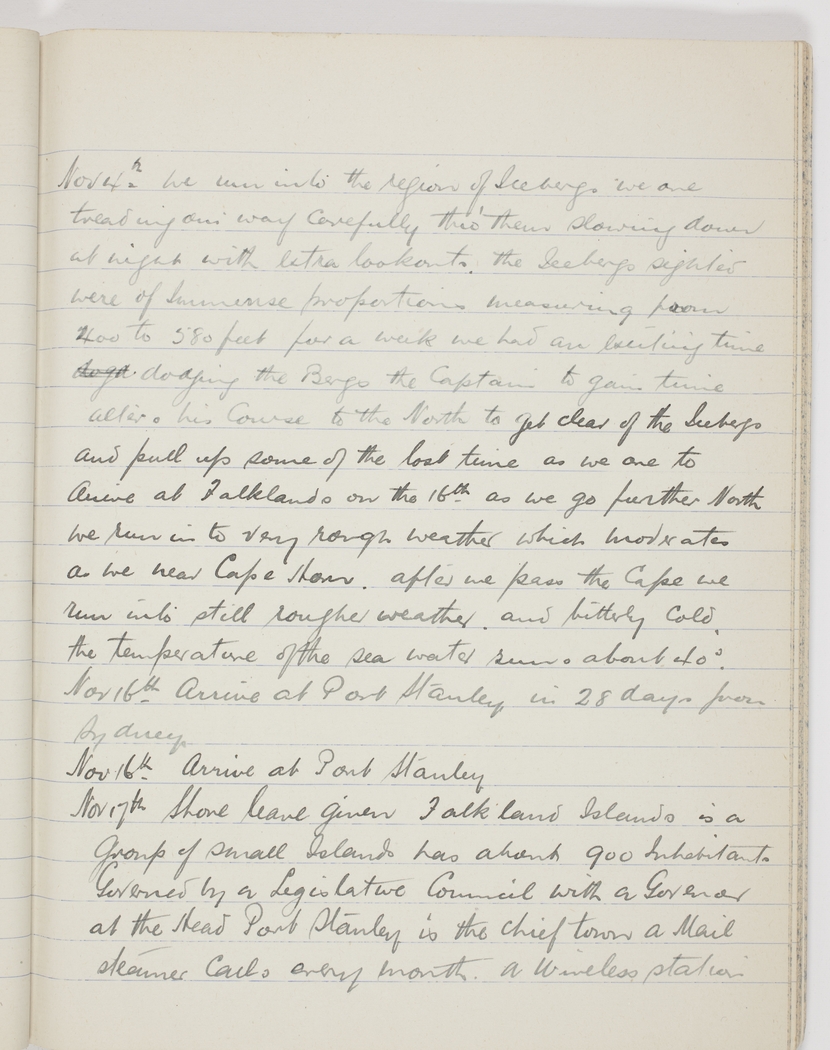 Nov 4th we run into the region of Icebergs we are
treading our way carefully thro' them slowing down
at night with extra lookouts. the Icebergs sighted
were of Immense proportions measuring from
400 to 580 feet for a week we had an exciting time
dodging the Bergs the Captain to gain time
alters his Course to the North to get clear of the Icebergs
and pull up some of the lost time as we are to
Arrive at Falklands on the 16th as we go further North
we run in to very rough weather which moderates
as we near Cape Horn. after we pass the Cape we
run into still rougher weather. and bitterly Cold.
the temperature of the sea water runs about 40°.
Nov 16th Arrive at Port Stanley in 28 days from
Sydney
Nov 16th Arrive at Port Stanley
Nov 17th Shore leave given Falkland Islands is a
Group of small Islands has about 900 Inhabitants
Governed by a Legislative Council with a Govenor
at the Head Port Stanley is the chief town a Mail
steamer Calls every month. a Wireless station